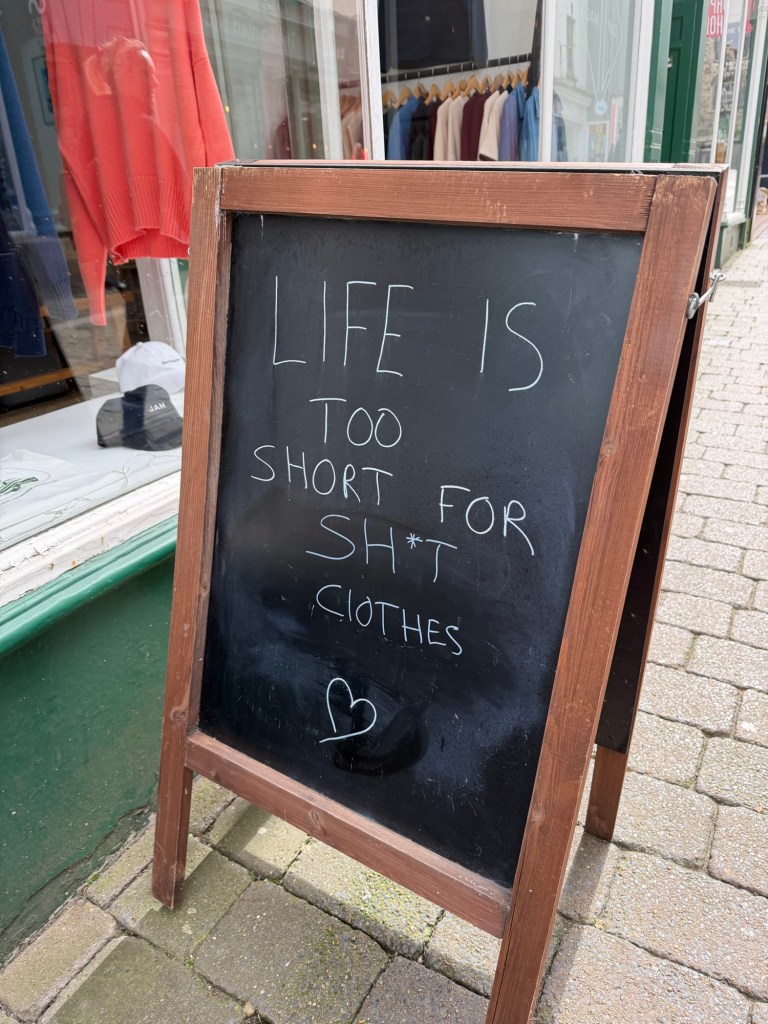 LIFE IS
TOO
SHORT FOR
SH*T
CLOTHES
JAM